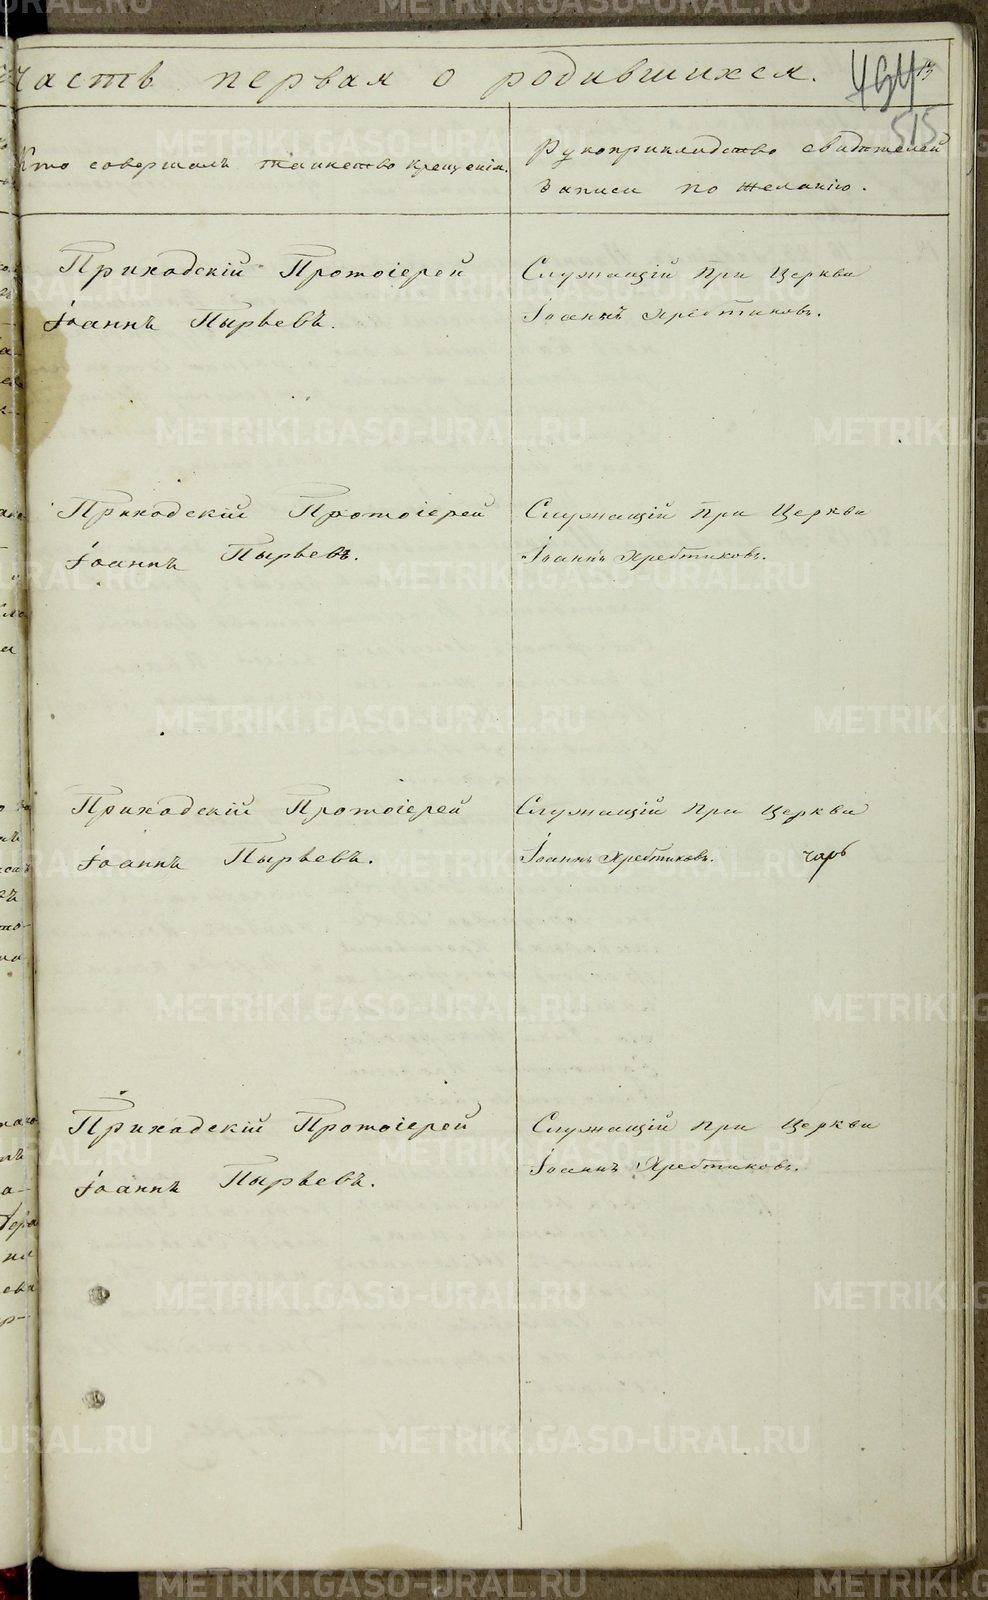 часть первая о родившихся.
515
Кто совершалъ таинство крещенія.
Рукоприкладство свидѣтелей
записи по желанію.
Приходскій Протоіерей
Іоаннъ Пырьевъ.
Служащій при Церкви
Іоаннъ Хребтиковъ.
Приходскій Протоіерей
Іоаннъ Пырьевъ.
Служащій при Церкви
Іоаннъ Хребтиковъ.
Приходскій Протоіерей
Іоаннъ Пырьевъ.
Служащій при Церкви
Іоаннъ Хребтиковъ.
Приходскій Протоіерей
Іоаннъ Пырьевъ.
Служащій при Церкви
Іоаннъ Хребтиковъ.
METRIKI.GASO-URAL.RU